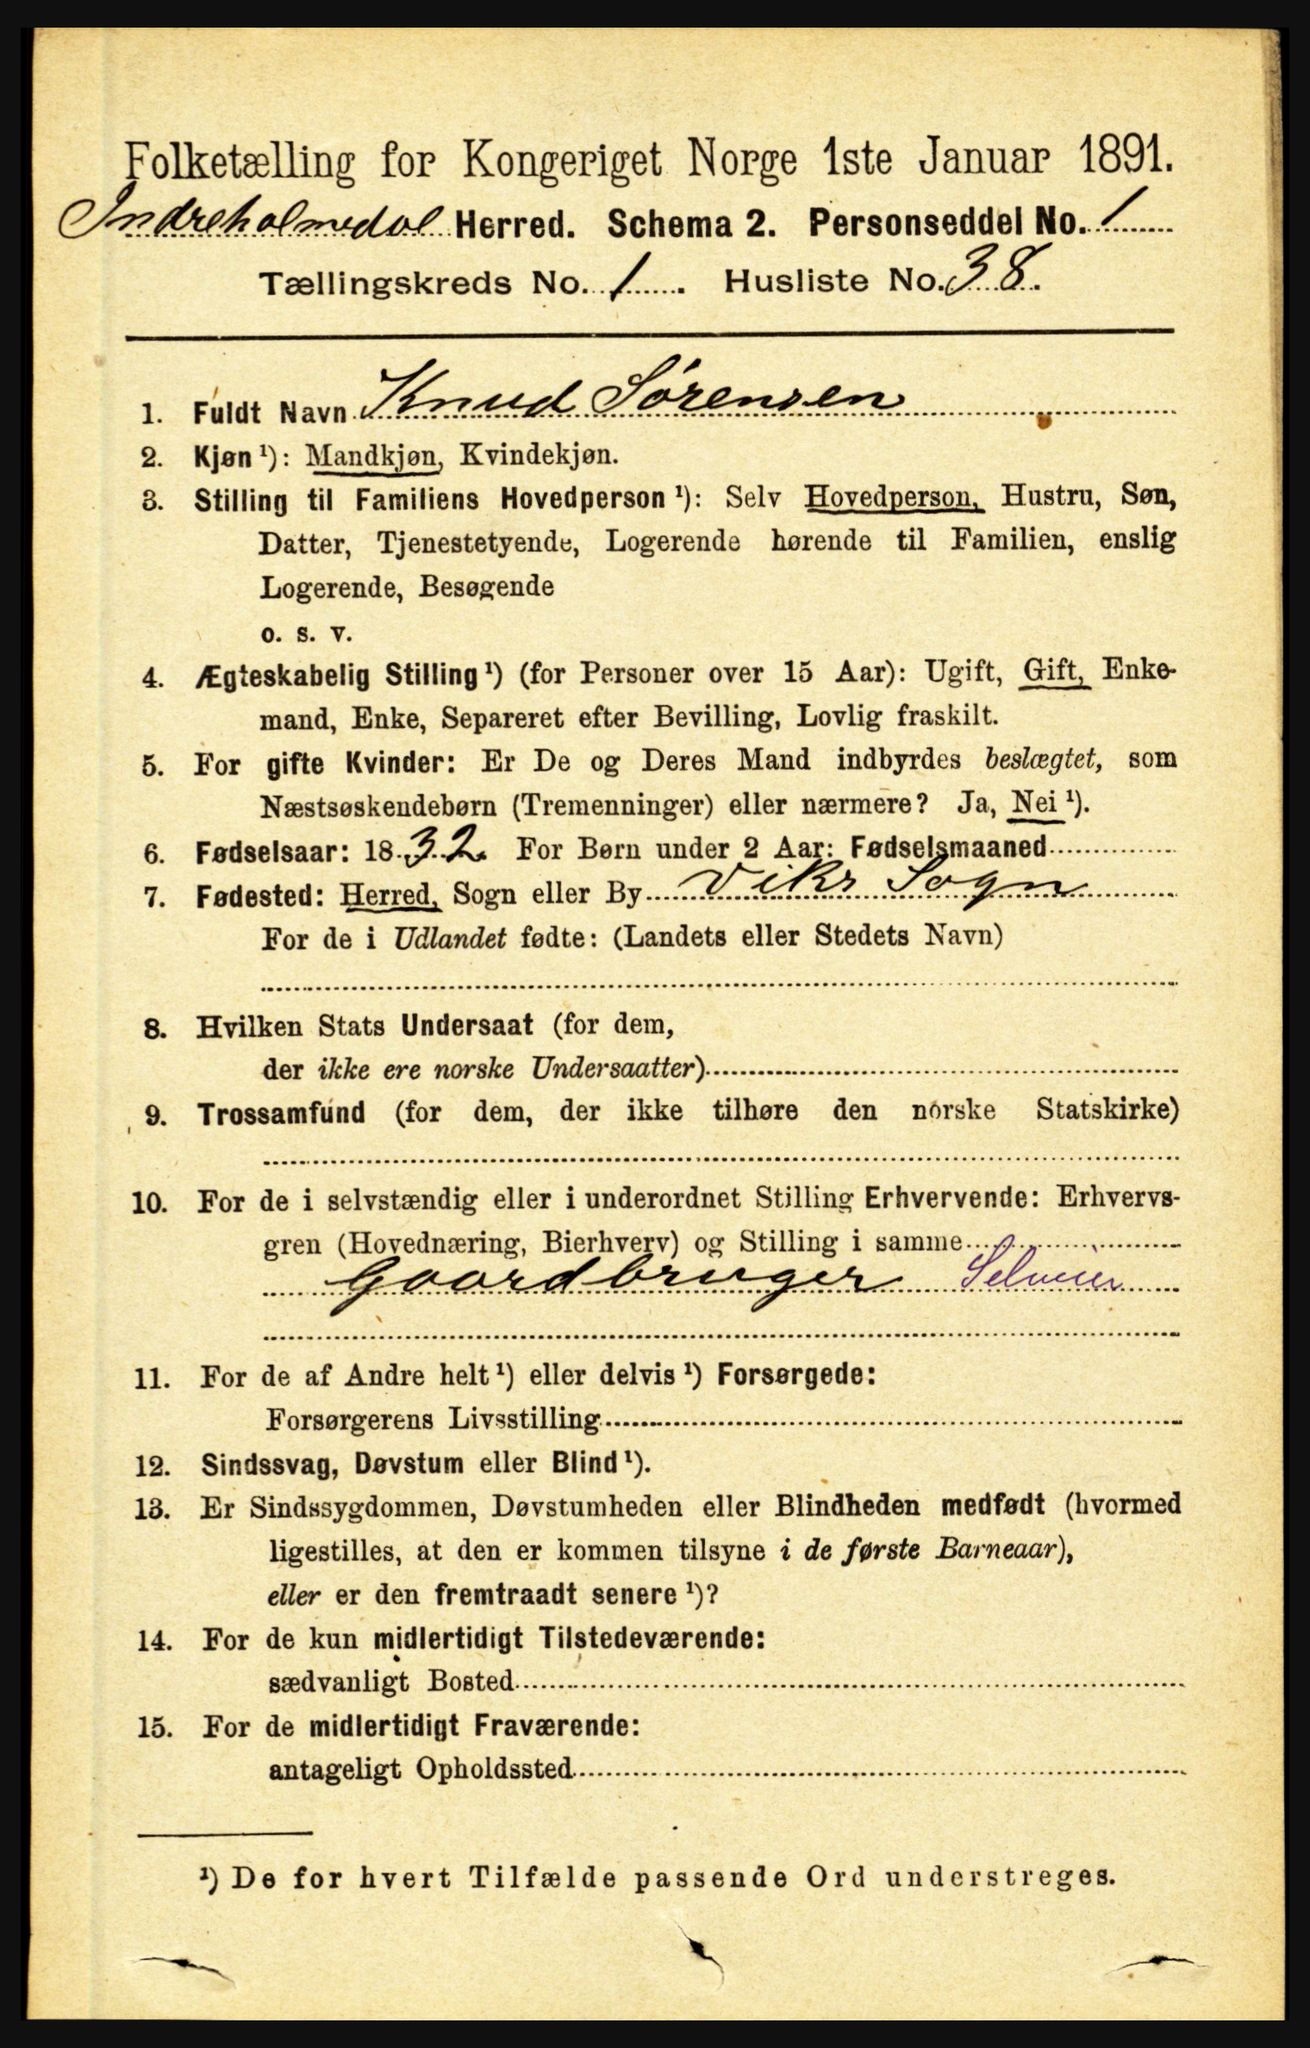 Folketælling for Kongeriget Norge 1ste Januar 1891.
Indreholmedal Herred. Schema 2. Personseddel No. 1
Tællingskreds No. 1. Husliste No. 38.
1. Fuldt Navn Knud Sørensen
2. Kjøn ¹): Mandkjøn, Kvindekjøn.
3. Stilling til Familiens Hovedperson ¹): Selv Hovedperson, Hustru, Søn,
Datter, Tjenestetyende, Logerende hørende til Familien, enslig
Logerende, Besøgende
o. s. v.
4. Ægteskabelig Stilling ¹) (for Personer over 15 Aar): Ugift, Gift, Enke-
mand, Enke, Separeret efter Bevilling, Lovlig fraskilt.
5. For gifte Kvinder: Er De og Deres Mand indbyrdes beslægtet, som
Næstsøskendebørn (Tremenninger) eller nærmere? Ja, Nei ¹).
6. Fødselsaar: 1832. For Børn under 2 Aar: Fødselsmaaned
7. Fødested: Herred, Sogn eller By Viks Sogn
For de i Udlandet fødte: (Landets eller Stedets Navn)
8. Hvilken Stats Undersaat (for dem,
der ikke ere norske Undersaatter)
9. Trossamfund (for dem, der ikke tilhøre den norske Statskirke)
10. For de i selvstændig eller i underordnet Stilling Erhvervende: Erhvervs-
gren (Hovednæring, Bierhverv) og Stilling i samme
Gaardbruger Selveier
11. For de af Andre helt ¹) eller delvis ¹) Forsørgede:
Forsørgerens Livsstilling
12. Sindssvag, Døvstum eller Blind ¹).
13. Er Sindssygdommen, Døvstumheden eller Blindheden medfødt (hvormed
ligestilles, at den er kommen tilsyne i de første Barneaar),
eller er den fremtraadt senere ¹)?
14. For de kun midlertidigt Tilstedeværende:
sædvanligt Bosted
15. For de midlertidigt Fraværende:
antageligt Opholdssted
¹) De for hvert Tilfælde passende Ord understreges.